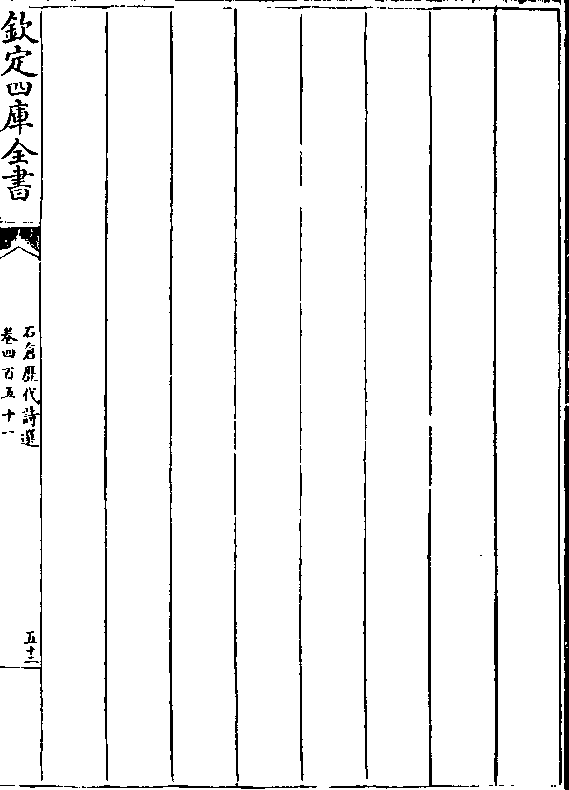 欽定四庫全書
石倉歷代詩選
卷四百五十一
五十二